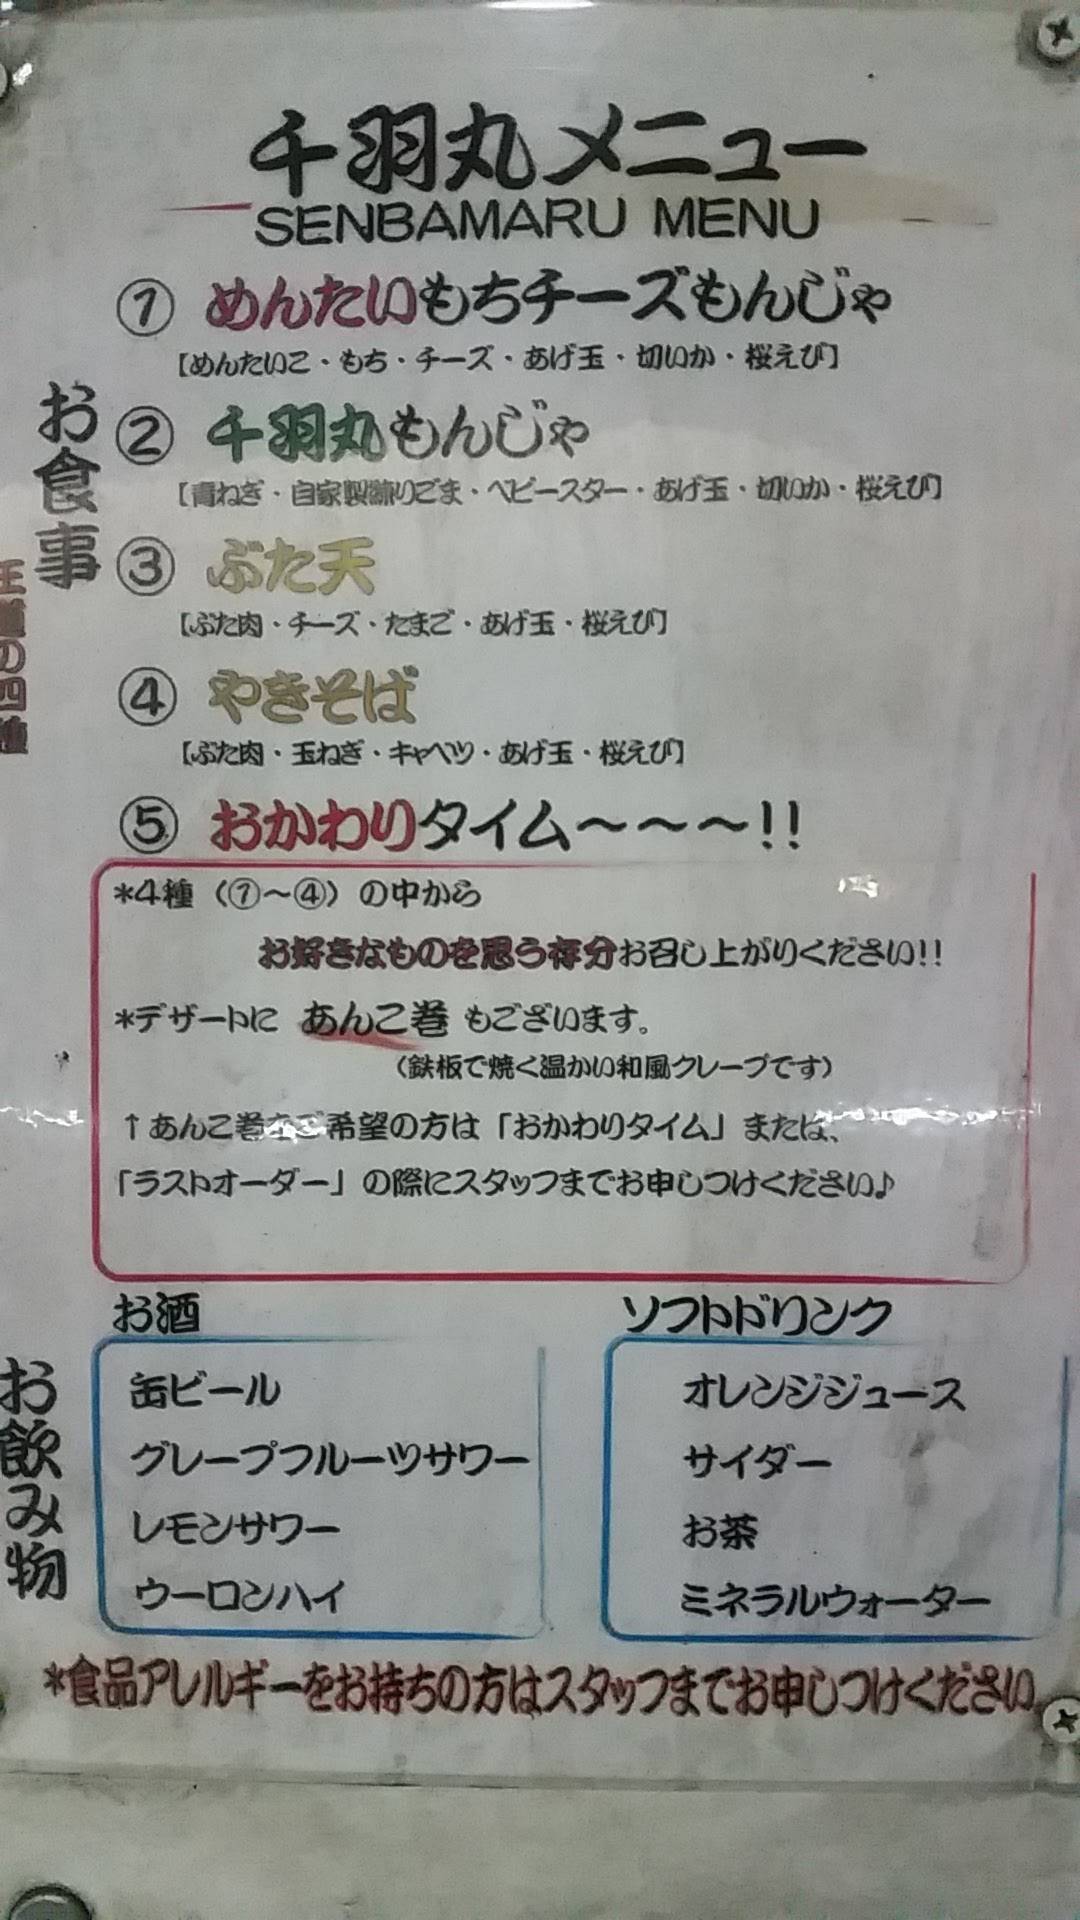 千羽丸メニュー
SENBAMARU MENU
お食事
王道の四種
① めんたいもちチーズもんじゃ
【めんたいこ・もち・チーズ・あげ玉・切いか・桜えび】
② 千羽丸もんじゃ
【青ねぎ・自家製飾りごま・ベビースター・あげ玉・切いか・桜えび】
③ ぶた天
【ぶた肉・チーズ・たまご・あげ玉・桜えび】
④ やきそば
【ぶた肉・玉ねぎ・キャベツ・あげ玉・桜えび】
⑤ おかわりタイム～～～!!
*4種（①～④）の中から
お好きなものを思う存分お召し上がりください!!
*デザートに あんこ巻 もございます。
（鉄板で焼く温かい和風クレープです）
↑あんこ巻をご希望の方は「おかわりタイム」または、
「ラストオーダー」の際にスタッフまでお申しつけください♪
お飲み物
お酒
缶ビール
グレープフルーツサワー
レモンサワー
ウーロンハイ
ソフトドリンク
オレンジジュース
サイダー
お茶
ミネラルウォーター
*食品アレルギーをお持ちの方はスタッフまでお申しつけください。